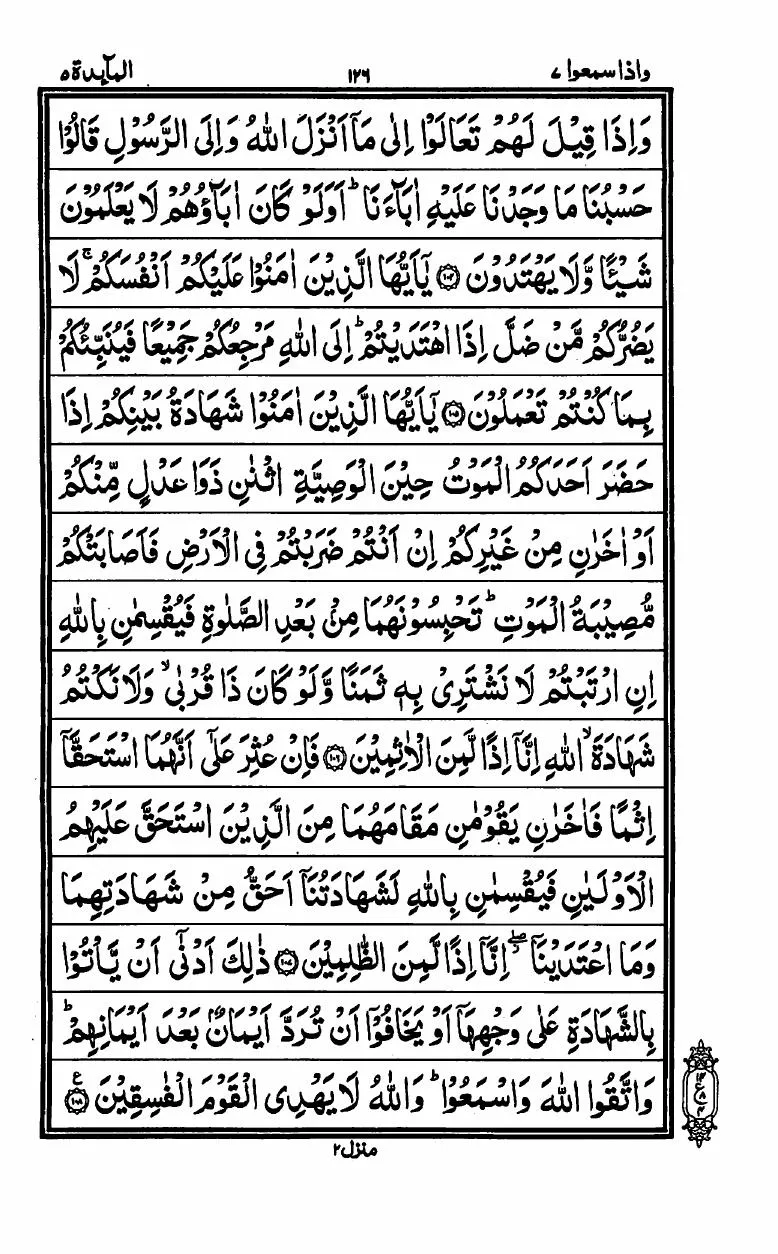 واذا سمعوا ٧ ١٢٦ المآيدة ٥
وَاِذَا قِيْلَ لَهُمْ تَعَالَوْا اِلٰى مَاۤ اَنْزَلَ اللّٰهُ وَاِلَى الرَّسُوْلِ قَالُوْا
حَسْبُنَا مَا وَجَدْنَا عَلَيْهِ اٰبَآءَنَا ؕ اَوَلَوْ كَانَ اٰبَآؤُهُمْ لَا يَعْلَمُوْنَ
شَيْـًٔا وَّلَا يَهْتَدُوْنَ ۝۱۰۴ يٰۤاَيُّهَا الَّذِيْنَ اٰمَنُوْا عَلَيْكُمْ اَنْفُسَكُمْ ۚ لَا
يَضُرُّكُمْ مَّنْ ضَلَّ اِذَا اهْتَدَيْتُمْ ؕ اِلَى اللّٰهِ مَرْجِعُكُمْ جَمِيْعًا فَيُنَبِّئُكُمْ
بِمَا كُنْتُمْ تَعْمَلُوْنَ ۝۱۰۵ يٰۤاَيُّهَا الَّذِيْنَ اٰمَنُوْا شَهَادَةُ بَيْنِكُمْ اِذَا
حَضَرَ اَحَدَكُمُ الْمَوْتُ حِيْنَ الْوَصِيَّةِ اثْنٰنِ ذَوَا عَدْلٍ مِّنْكُمْ
اَوْ اٰخَرٰنِ مِنْ غَيْرِكُمْ اِنْ اَنْتُمْ ضَرَبْتُمْ فِى الْاَرْضِ فَاَصَابَتْكُمْ
مُّصِيْبَةُ الْمَوْتِ ؕ تَحْبِسُوْنَهُمَا مِنْۢ بَعْدِ الصَّلٰوةِ فَيُقْسِمٰنِ بِاللّٰهِ
اِنِ ارْتَبْتُمْ لَا نَشْتَرِىْ بِهٖ ثَمَنًا وَّلَوْ كَانَ ذَا قُرْبٰى ۙ وَلَا نَكْتُمُ
شَهَادَةَ ۙ اللّٰهِ اِنَّاۤ اِذًا لَّمِنَ الْاٰثِمِيْنَ ۝۱۰۶ فَاِنْ عُثِرَ عَلٰۤى اَنَّهُمَا اسْتَحَقَّاۤ
اِثْمًا فَاٰخَرٰنِ يَقُوْمٰنِ مَقَامَهُمَا مِنَ الَّذِيْنَ اسْتَحَقَّ عَلَيْهِمُ
الْاَوْلَيٰنِ فَيُقْسِمٰنِ بِاللّٰهِ لَشَهَادَتُنَاۤ اَحَقُّ مِنْ شَهَادَتِهِمَا
وَمَا اعْتَدَيْنَاۤ ۖ اِنَّاۤ اِذًا لَّمِنَ الظّٰلِمِيْنَ ۝۱۰۷ ذٰلِكَ اَدْنٰۤى اَنْ يَّاْتُوْا
بِالشَّهَادَةِ عَلٰى وَجْهِهَاۤ اَوْ يَخَافُوْۤا اَنْ تُرَدَّ اَيْمَانٌۢ بَعْدَ اَيْمَانِهِمْ ؕ
وَاتَّقُوا اللّٰهَ وَاسْمَعُوْا ؕ وَاللّٰهُ لَا يَهْدِى الْقَوْمَ الْفٰسِقِيْنَ ۝۱۰۸ ع
منزل ٢